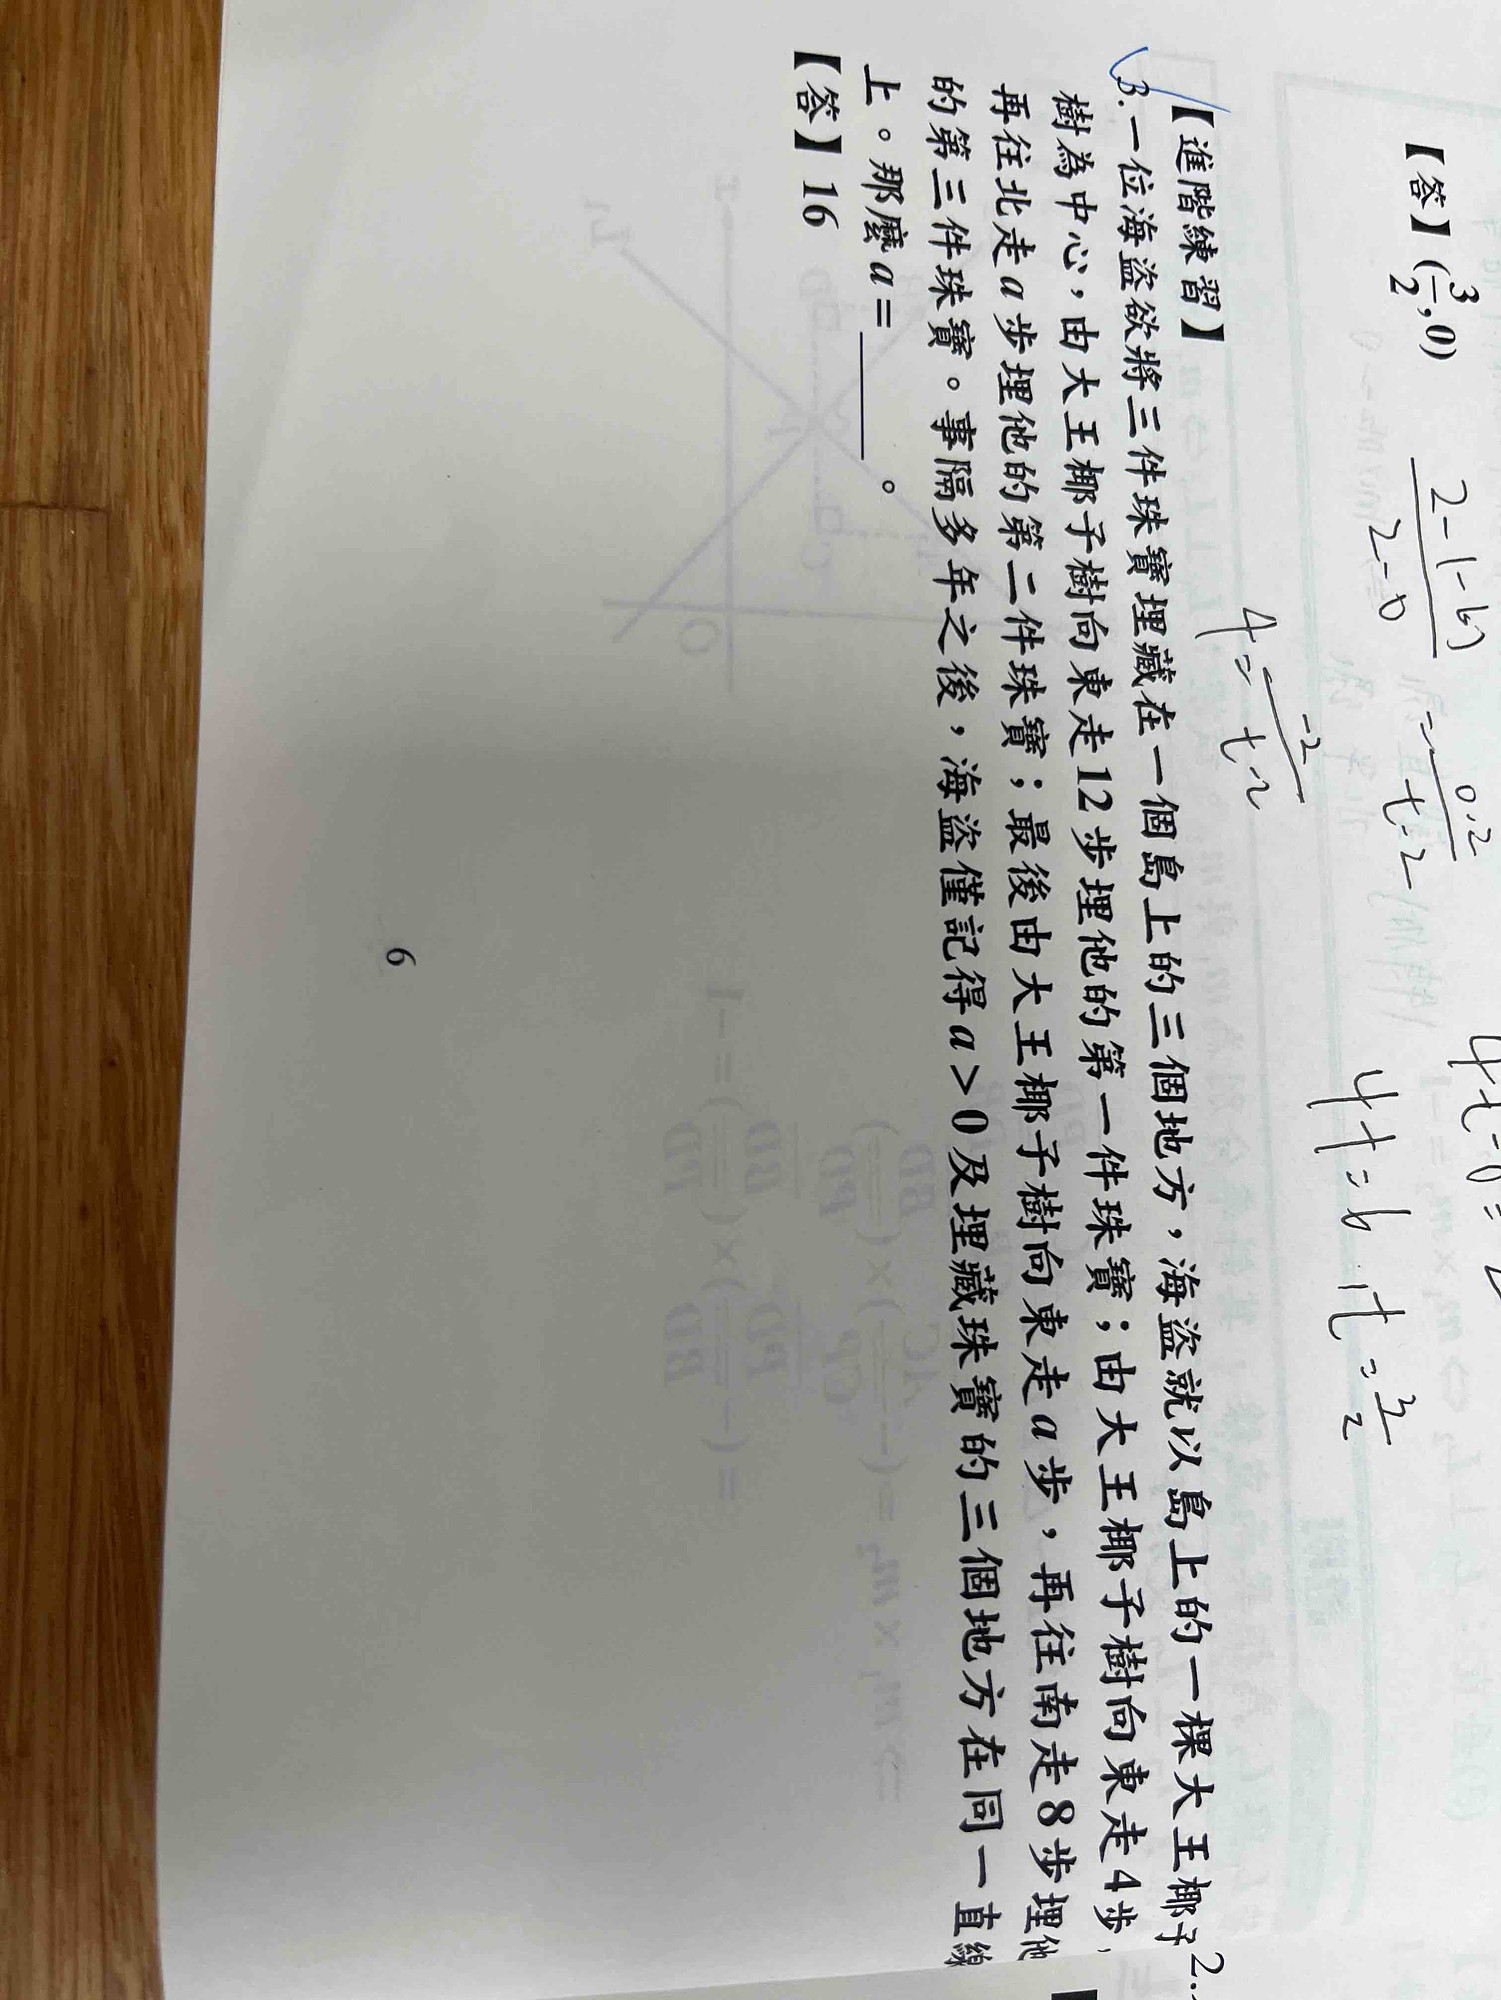 【答】(3/2,0)
2-(-6)/2-0 = 0-2/t-2
4=-2/t-2
4t=6 , t=3/2
【進階練習】
3.一位海盜欲將三件珠寶埋藏在一個島上的三個地方，海盜就以島上的一棵大王椰子
樹為中心，由大王椰子樹向東走12步埋他的第一件珠寶；由大王椰子樹向東走4步，
再往北走a步埋他的第二件珠寶；最後由大王椰子樹向東走a步，再往南走8步埋他
的第三件珠寶。事隔多年之後，海盜僅記得a>0及埋藏珠寶的三個地方在同一直線
上。那麼a=______。
【答】16
6
2.